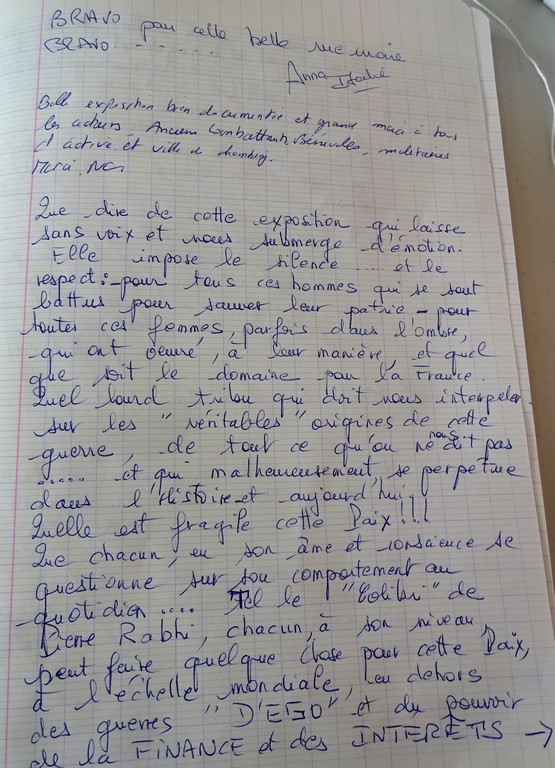 BRAVO pour cette belle mémoire
BRAVO - - - - -
Anna
Belle exposition bien documentée et grand merci à tous
les acteurs, Anciens Combattants, Bénévoles, militaires
d'active et ville de
Merci.
Que dire de cette exposition qui laisse
sans voix et nous submerge d'émotion.
Elle impose le silence ..... et le
respect : - pour tous ces hommes qui se sont
battus pour sauver leur patrie - pour
toutes ces femmes, parfois dans l'ombre,
qui ont oeuvré, à leur manière, et quel
que soit le domaine pour la France.
Quel lourd tribu qui doit nous interpeler
sur les "véritables" origines de cette
guerre, de tout ce qu'on ne nous dit pas
..... et qui malheureusement, se perpétue
dans l'Histoire et aujourd'hui.
Qu'elle est fragile cette Paix !!!
Que chacun, en son âme et conscience se
questionne sur son comportement au
quotidien .... Tel le "Colibri" de
Pierre Rabhi, chacun, à son niveau,
peut faire quelque chose pour cette Paix,
à l'échelle mondiale, en dehors
des guerres "D'EGO" et du pouvoir
de la FINANCE et des INTERETS →